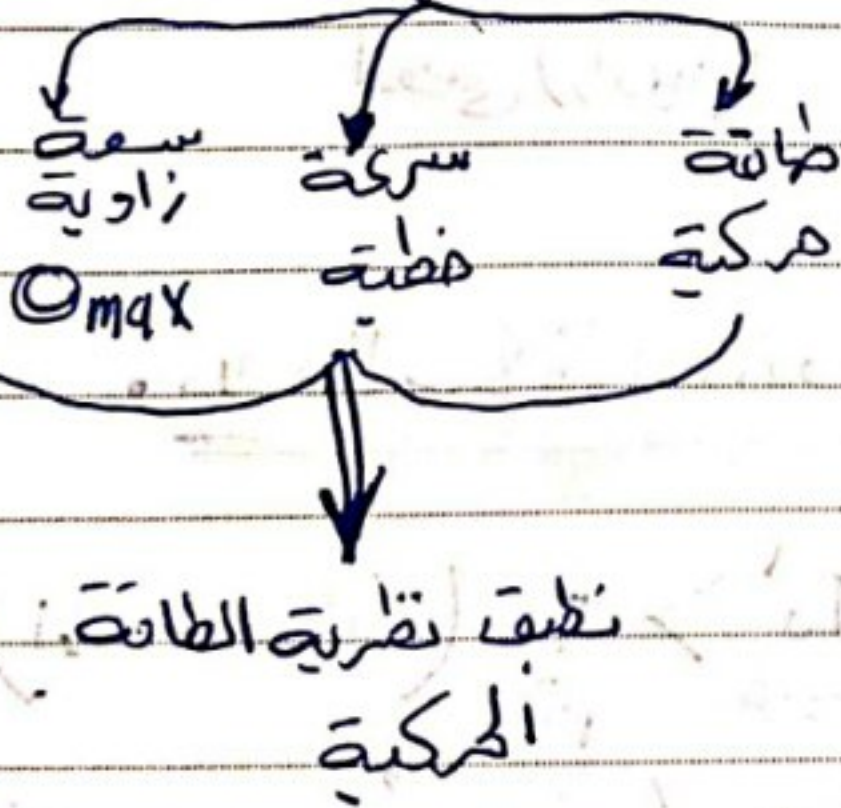 طاقة
حركية
سرعة
خطية
سعة
زاوية
Θmax
نطبق نظرية الطاقة
الحركية